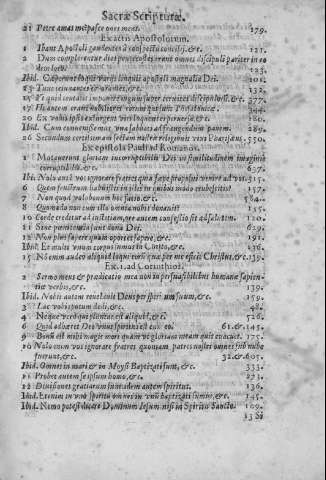 Sacræ Scripturæ.
21 Petre amas me? pasce oues meas. 179.
Ex actis Apostolorum.
1 Ibant Apostoli gaudentes à conspectu concilij, &c. 121.
2 Dum complerentur dies pentecostes erant omnes discipuli pariter in eodem loco. 133.
Ibid. linguis apostoli magnalia Dei. 201.
&c. 132.
super &c. 377.
Et nobilior
20 Ex vobis ipsis exurgent viri loquentes peruersa, &c. 180.
Ibid. Cum conuenissemus vna sabbati ad frangendum panem 289.
26 Secundum certissimam sectam nostræ religionis vixi Pharisæus. 550.
Ex epistola Pauli ad Romanos.
1 Mutauerunt gloriam incorruptibilis Dei in similitudinem imaginis
corruptibilis, &c. 657.
Ibid. Nolo vos ignorare fratres quia sæpe proposui venire ad vos. 315.
6 Quem fructum habuistis in illis in quibus modo erubescitis? 157.
7 Non quod volo bonum hoc facio, &c. 584.
8 Quomodo non cum illo omnia nobis donauit 15.
10 Corde creditur ad iustitiam, ore autem confessio fit ad salutem. 120.
11 Sine pœnitentia sunt dona Dei. 629.
12 Non plus sapere quam oportet sapere, &c. 191.
Ibid. Et multi vnum corpus sumus in Christo, &c. 136.
15 Non enim audeo aliquid loqui eorum quæ per me efficit Christus, &c. 139.
Ex 1. ad Corinthios.
2 Sermo meus & prædicatio mea non in persuasibilibus humanæ sapientiæ
verbis, &c. 139.
Ibid. Nobis autem reuelauit Deus per spiritum suum, &c. 159.
3 Lac vobis potum dedi, &c. 48.
4 Neque qui plantat est aliquid, &c. 526.
6 Qui adhæret Deo vnus spiritus est cum eo. 61. & 145.
9 Bonum est mihi magis mori quam vt gloriam meam quis euacuet. 175.
10 Nolo enim vos ignorare fratres quoniam patres nostri omnes sub nube
fuerunt, &c. 32. & 605.
Ibid. Omnes in mari & in Moyse Baptizati sunt, &c. 333.
11 Probet autem seipsum homo, &c. 273.
12 Diuisiones gratiarum sunt idem autem spiritus. 136.
Ibid. Etenim in vno spiritu omnes in vnum baptizati sumus, &c. 145.
Ibid. Nemo potest dicere Dominum Iesum nisi in Spiritu Sancto. 169.